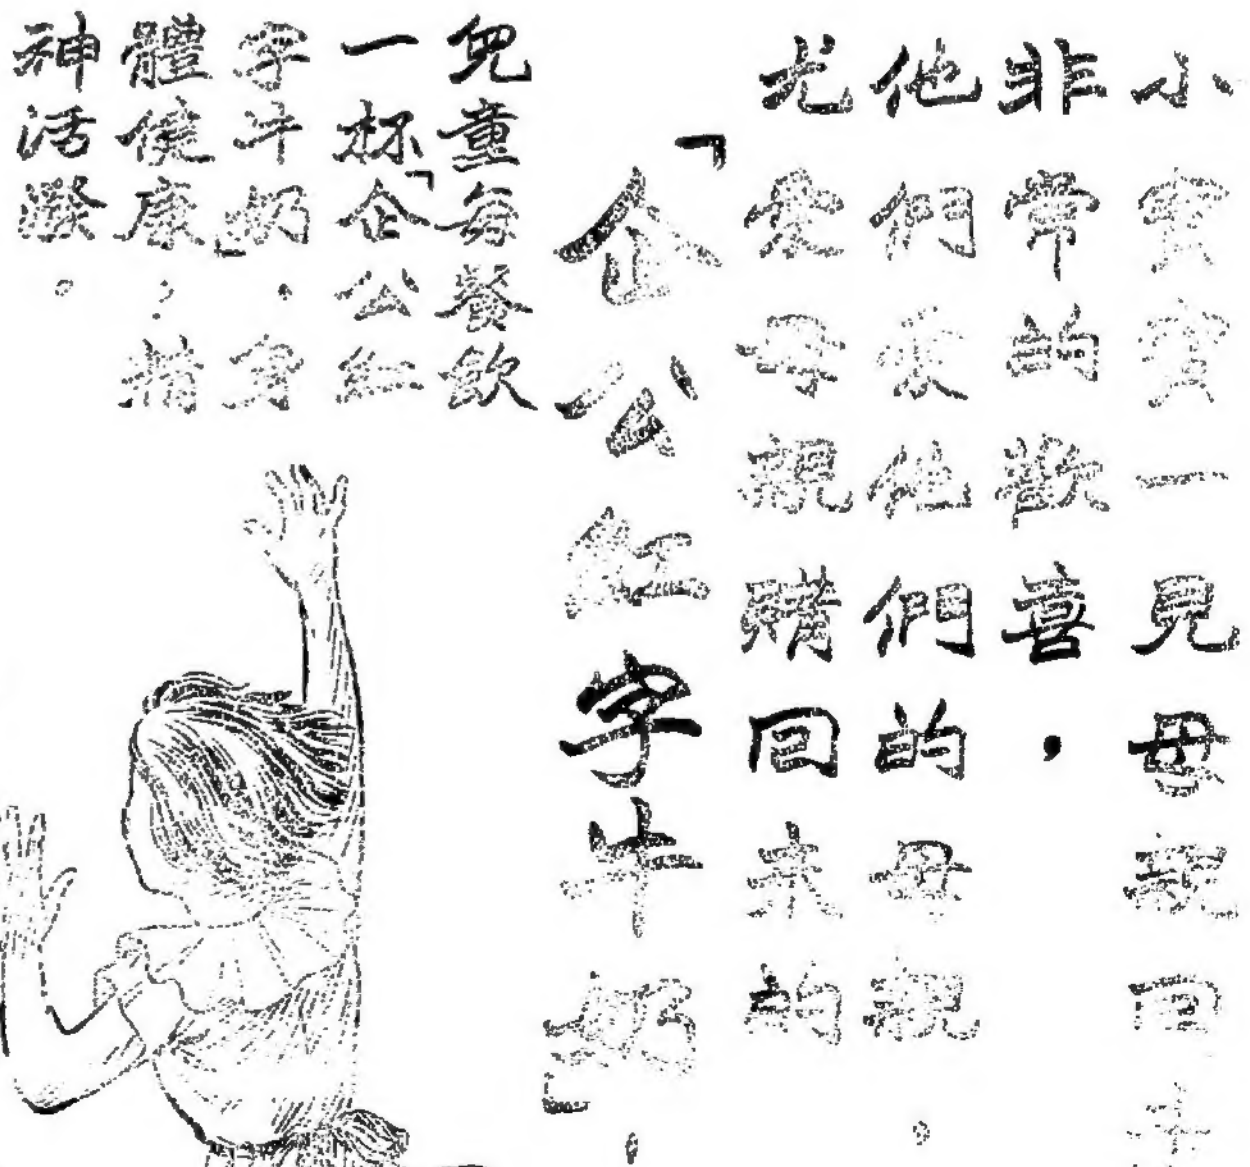 小寶寶一見母親回
非常的歡喜，
他們愛他們的母親。
尤愛母親購回来的
「企公紅字牛奶」，
兒童每餐飲
一杯「企公紅
字牛奶」，身
體健康，精
神活潑。